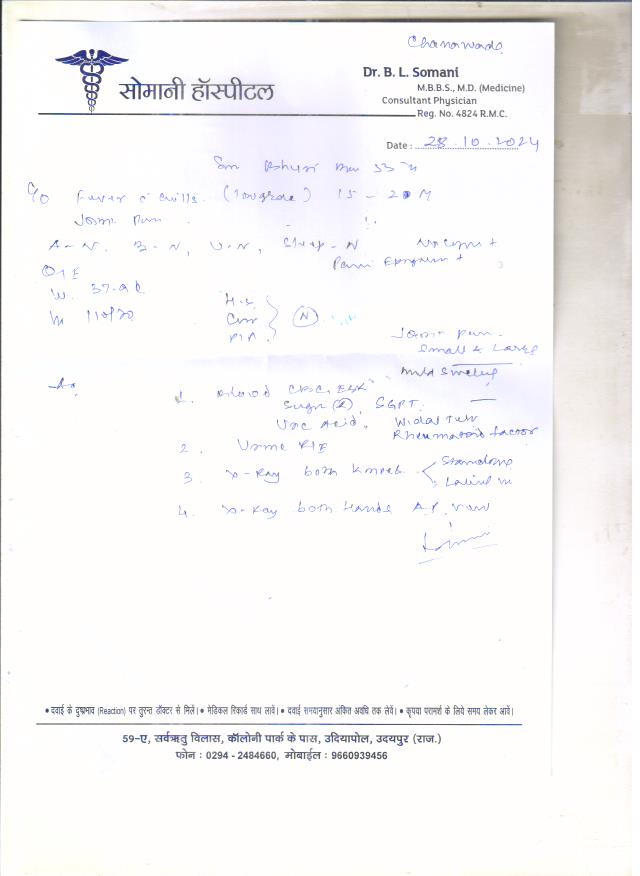 सोमानी हॉस्पीटल
Dr. B. L. Somani
M.B.B.S., M.D. (Medicine)
Consultant Physician
Reg. No. 4824 R.M.C.
Date : 28.10.2024
C/o Fever c chills (low grade) 15 - 20
Joint Pain
A - N, B - N, U - N, Sleep - N
O/E
W.
110/70
P/A
N
Joint Pain
Small & Large
Mild Swelling
1. Blood CBC, ESR
Sugar (R), SGPT
Uric Acid, Widal Test
Rheumatoid factor
2. Urine R/E
3. X-Ray both knees Standing
Lateral
4. X-Ray both Hands A.P. View
• दवाई के दुष्प्रभाव (Reaction) पर तुरन्त डॉक्टर से मिलें। • मेडिकल रिकार्ड साथ लावें। • दवाई समयानुसार अंकित अवधि तक लेवें। • कृपया परामर्श के लिये समय लेकर आवें।
59-ए, सर्वऋतु विलास, कॉलोनी पार्क के पास, उदियापोल, उदयपुर (राज.)
फोन : 0294 - 2484660, मोबाईल : 9660939456